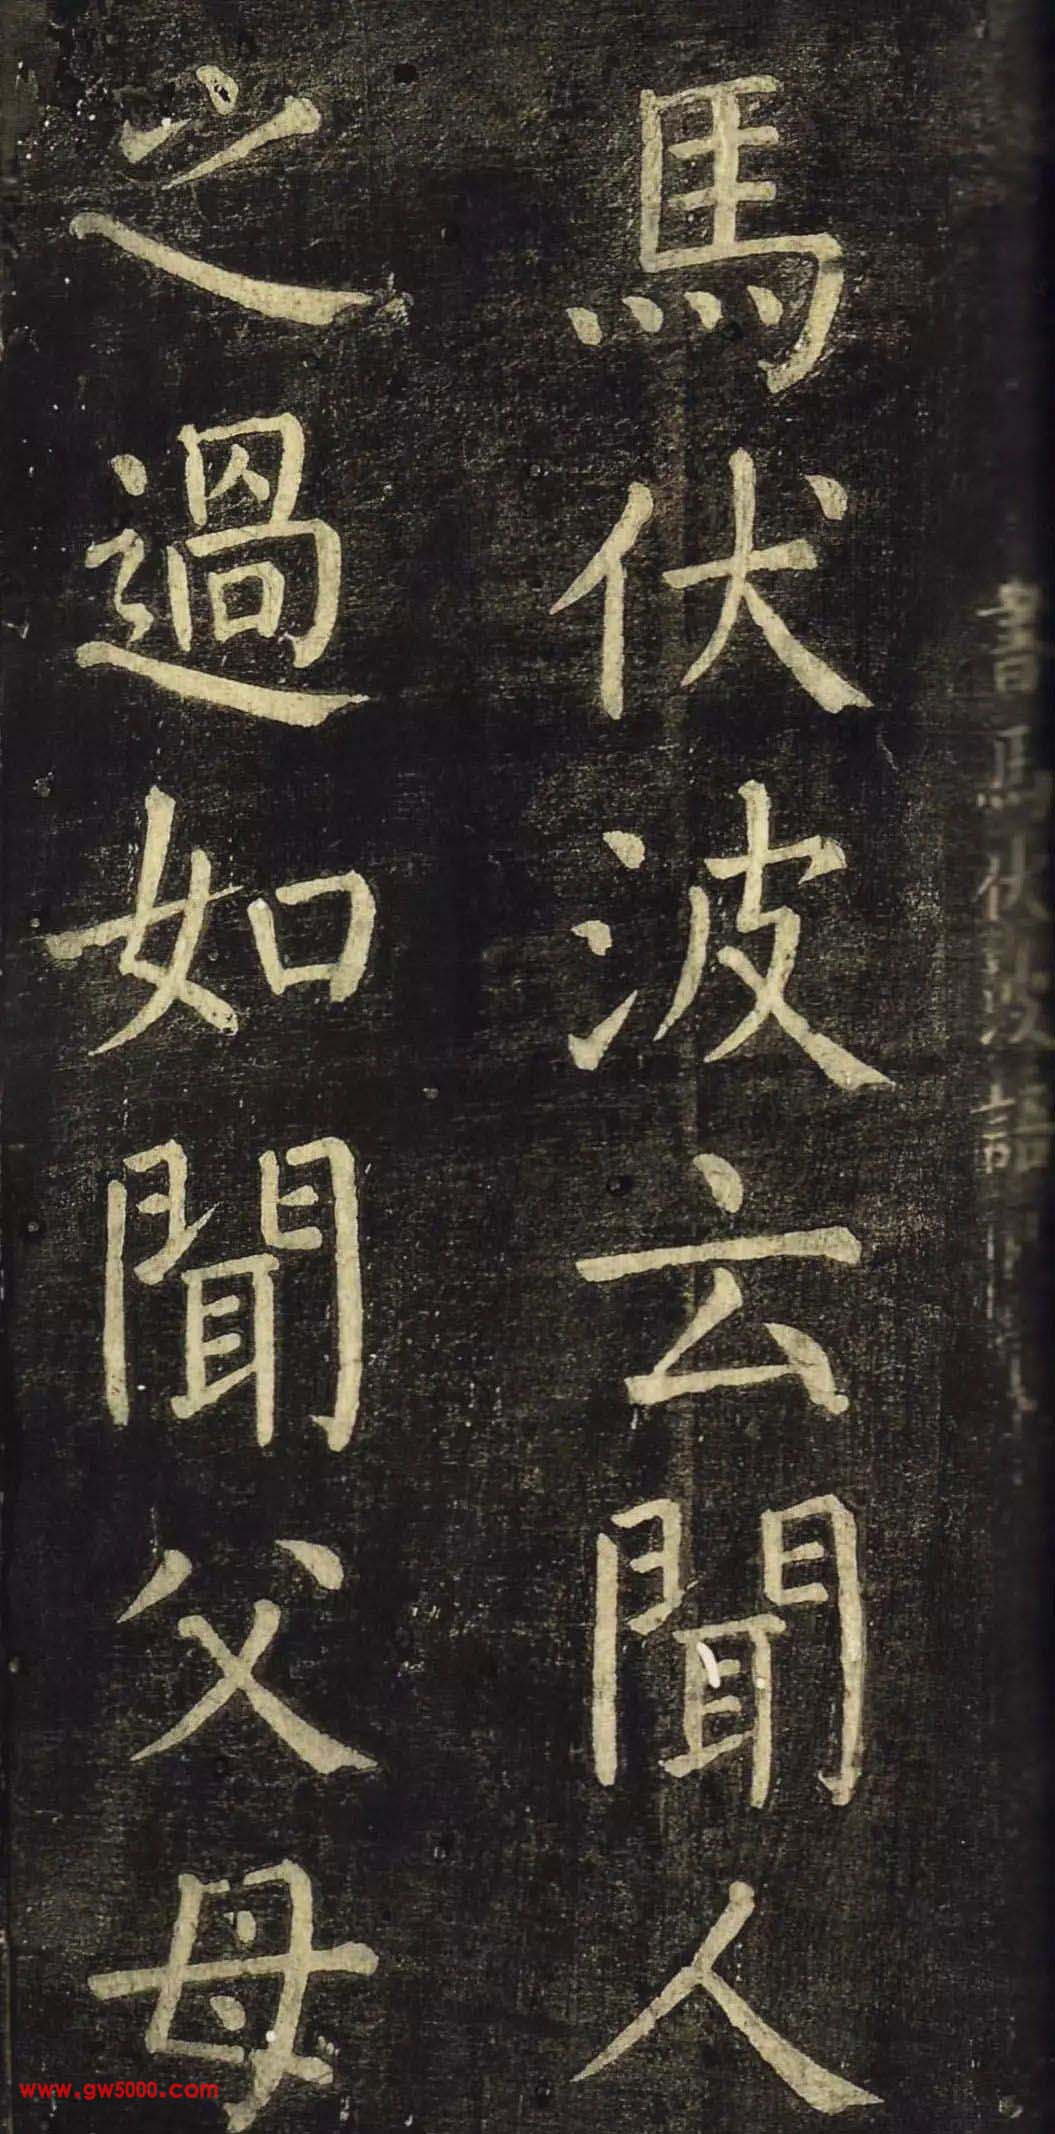 書馬伏波語
馬伏波云聞人
之過如聞父母
www.gw5000.com